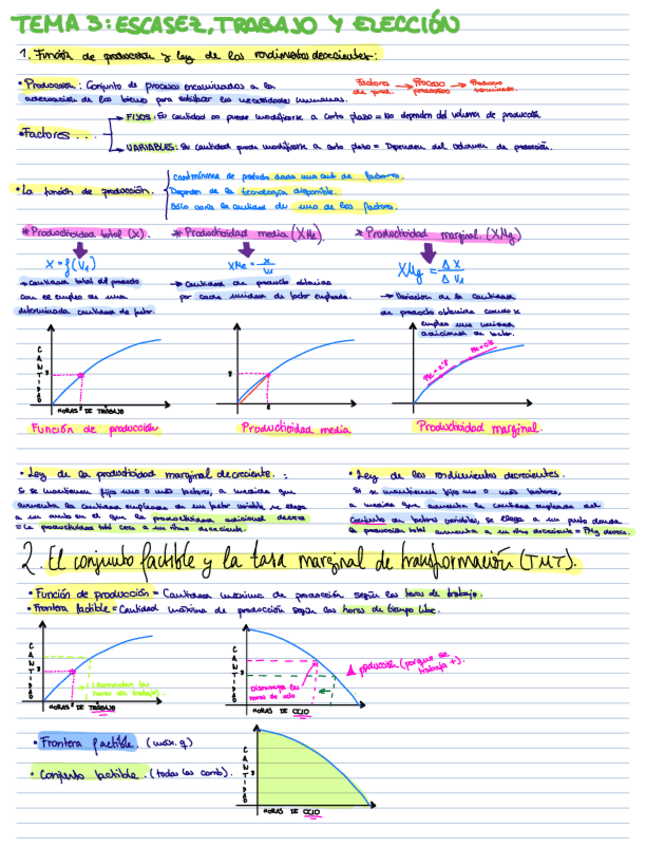 TEMA 3: ESCASEZ, TRABAJO Y ELECCIÓN
1. Función de producción y ley de los rendimientos decrecientes:
• Producción: Conjunto de procesos encaminados a la
de los bienes para satisfacer las necesidades humanas.
Factores de prod. → Proceso productivo → Producto terminado.
• Factores...
FIJOS: Su cantidad no puede modificarse a corto plazo = No dependen del volumen de producción
VARIABLES: Su cantidad puede modificarse a corto plazo = Dependen del volumen de producción.
• La función de producción.
Cant. máxima de producto dada una cant. de factores.
Depende de la tecnología disponible.
Sólo varía la cantidad de uno de los factores.
* Productividad total (X).
* Productividad media (XMe).
* Productividad marginal. (XMg)
X = f(V1)
XMe = X / V1
XMg = Δ X / Δ V1
→ Cantidad total del producto
con el empleo de una
determinada cantidad de factor.
→ Cantidad de producto obtenida
por cada unidad de factor empleada.
→ Variación de la cantidad
de producto obtenida cuando se
emplea una unidad
adicional de factor.
CANTIDAD
HORAS DE TRABAJO
Función de producción
Productividad media
Productividad marginal.
• Ley de la productividad marginal decreciente. :
Si se mantienen fijo uno o más factores, a medida que
aumenta la cantidad empleada de un factor variable se llega
a un punto en el que la productividad adicional decrece
= La productividad total crece a un ritmo decreciente.
• Ley de los rendimientos decrecientes.
Si se mantienen fijo uno o más factores,
a medida que aumenta la cantidad empleada del
conjunto de factores variables, se llega a un punto donde
la producción total aumenta a un ritmo decreciente = PMg decrece.
2. El conjunto factible y la tasa marginal de transformación (TMT).
• Función de producción = Cantidad máxima de producción según las horas de trabajo.
• Frontera factible = Cantidad máxima de producción según las horas de tiempo libre.
CANTIDAD
HORAS DE TRABAJO
(Aumentan las
horas de trabajo).
CANTIDAD
HORAS DE OCIO
Disminuye las
horas de ocio
producción (porque se
trabaja +).
• Frontera factible. (máx. q)
• Conjunto factible. (todas las comb).
CANTIDAD
HORAS DE OCIO